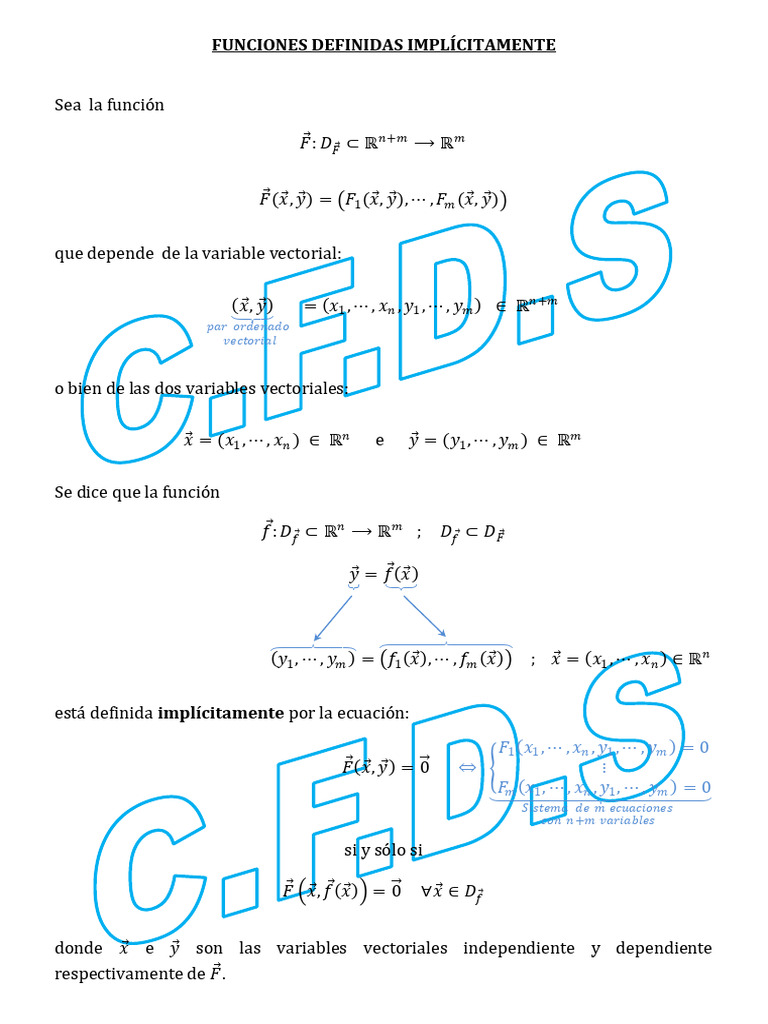 FUNCIONES DEFINIDAS IMPLÍCITAMENTE
Sea la función
F⃗: D_F⃗ ⊂ ℝⁿ⁺ᵐ ⟶ ℝᵐ
F⃗(x⃗, y⃗) = (F₁(x⃗, y⃗), ⋯ , Fₘ(x⃗, y⃗))
que depende de la variable vectorial:
(x⃗, y⃗) = (x₁, ⋯ , xₙ, y₁, ⋯ , yₘ) ∈ ℝⁿ⁺ᵐ
par ordenado
vectorial
o bien de las dos variables vectoriales:
x⃗ = (x₁, ⋯ , xₙ) ∈ ℝⁿ e y⃗ = (y₁, ⋯ , yₘ) ∈ ℝᵐ
Se dice que la función
f⃗: D_f⃗ ⊂ ℝⁿ ⟶ ℝᵐ ; D_f⃗ ⊂ D_F⃗
y⃗ = f⃗(x⃗)
(y₁, ⋯ , yₘ) = (f₁(x⃗), ⋯ , fₘ(x⃗)) ; x⃗ = (x₁, ⋯ , xₙ) ∈ ℝⁿ
está definida implícitamente por la ecuación:
F⃗(x⃗, y⃗) = 0⃗ ⇔ { F₁(x₁, ⋯ , xₙ, y₁, ⋯ , yₘ) = 0
⋮
Fₘ(x₁, ⋯ , xₙ, y₁, ⋯ yₘ) = 0
Sistema de m ecuaciones
con n+m variables
si y sólo si
F⃗ (x⃗, f⃗(x⃗)) = 0⃗ ∀x⃗ ∈ D_f⃗
donde x⃗ e y⃗ son las variables vectoriales independiente y dependiente
respectivamente de F⃗.
C.F.D.S
C.F.D.S